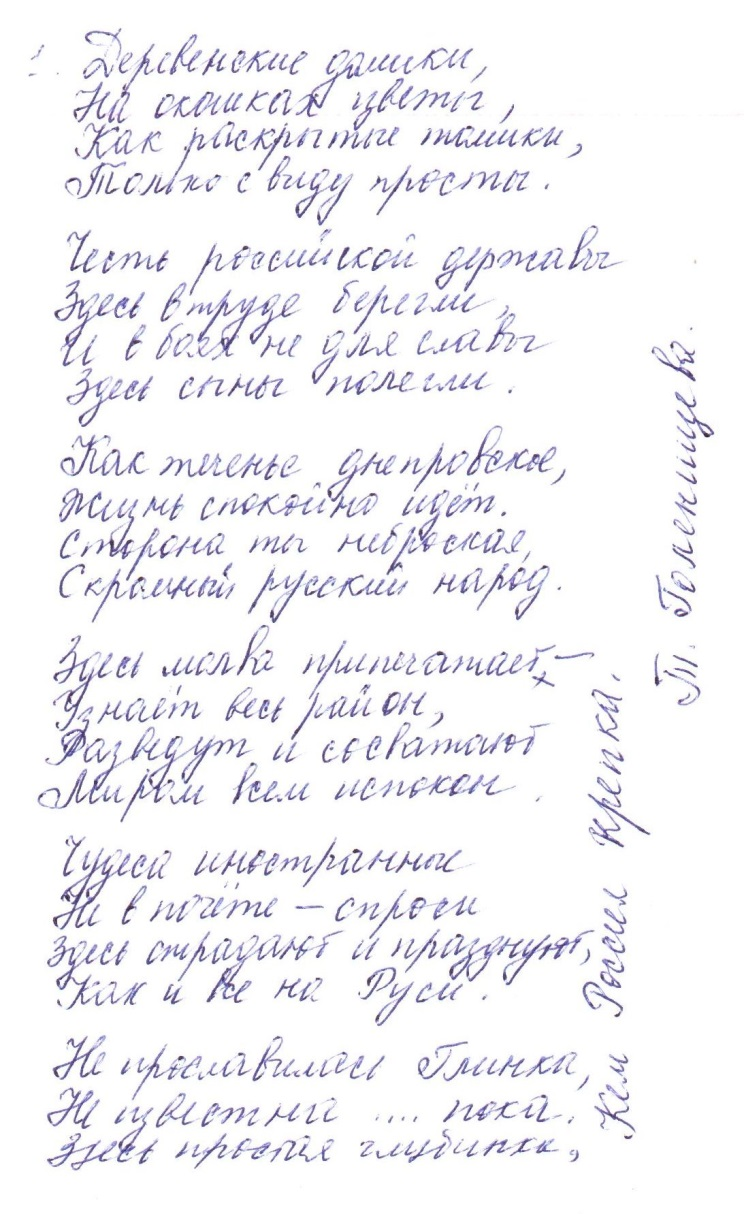 1. Деревенские домики,
На окошках цветы,
Как раскрытые томики,
Только с виду просты.
Честь российской державы
Здесь в труде берегли,
И в боях не для славы
Здесь сыны полегли.
Как теченье днепровское,
Жизнь спокойно идёт.
Сторона ты неброская,
Скромный русский народ.
Здесь молва припечатает, —
Узнаёт весь район,
Разведут и сосватают
Миром всем испокон.
Чудеса иностранные
Не в почёте — спроси
Здесь страдают и празднуют,
Как и все на Руси.
Не прославилась Глинка,
Не известна .... пока.
Здесь простая глубинка,
Кем Россия крепка.
Т. Голенищева.